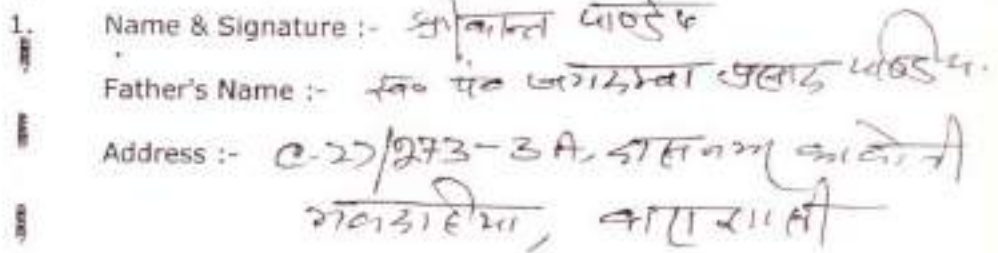 1. Name & Signature :- श्रीकान्त पाण्डेय
Father's Name :- स्व० पं० जगदम्बा प्रसाद पाण्डेय.
Address :- C.27/273-3A, कालोनी
मलदहिया, वाराणसी